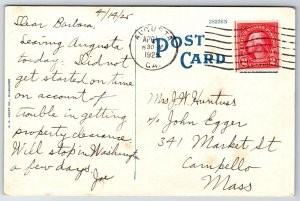 4/14/25
Dear Barbara,
Leaving Augusta
today. Did not
get started on time
on account of
trouble in getting
property clearance
Will stop in Washington
a few days.
Joe
AUGUSTA
APR
830
192
GA.
POST
CARD
Mrs J.W.
c/o John Egger
341 Market St
Campello
Mass